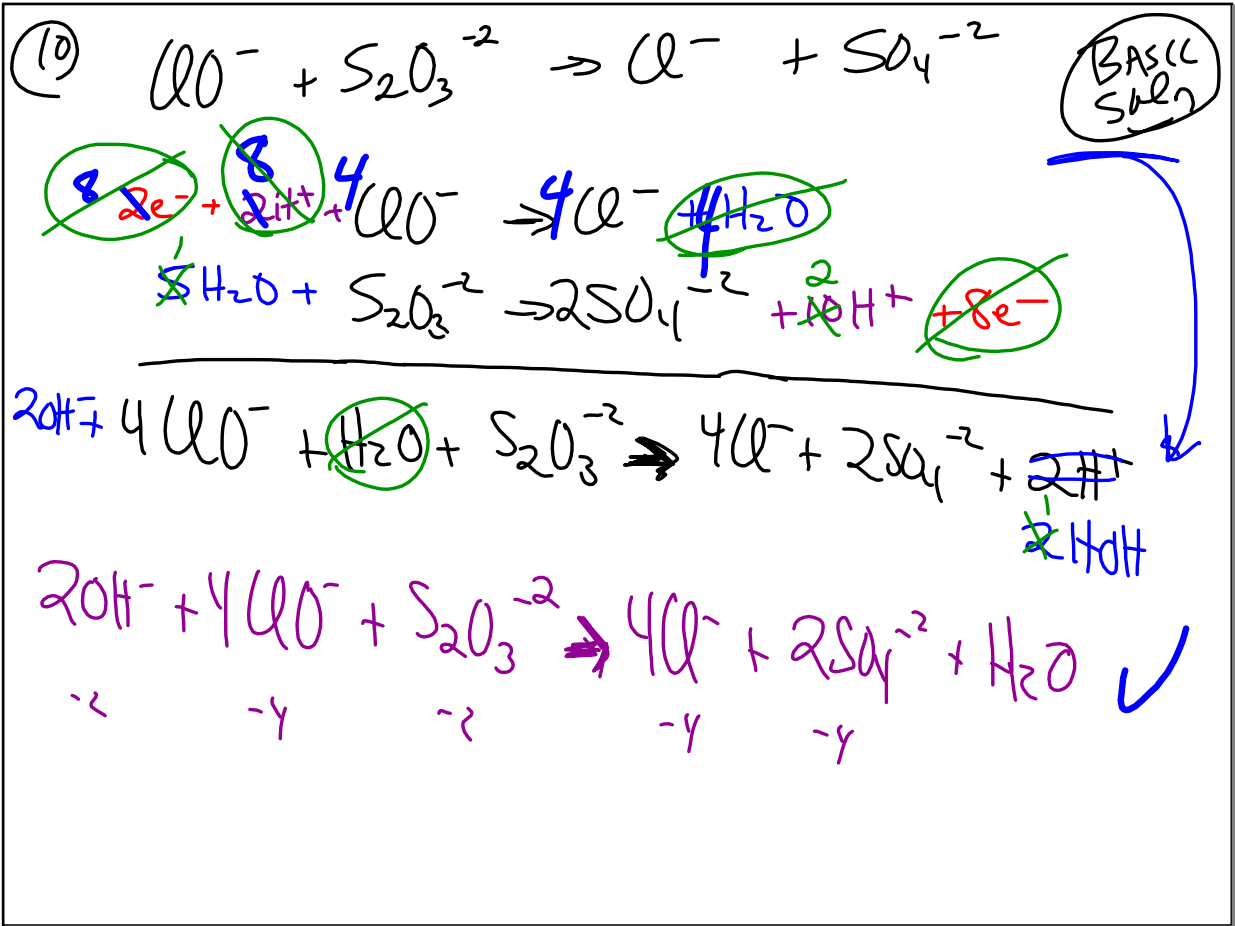 10 ClO⁻ + S₂O₃⁻² → Cl⁻ + SO₄⁻² BASIC Soln
8 2e⁻ + 8 2H⁺ + 4 ClO⁻ → 4 Cl⁻ + 4 H₂O
1 5 H₂O + S₂O₃⁻² → 2SO₄⁻² + 2 10 H⁺ + 8e⁻
2OH⁻ + 4ClO⁻ + H₂O + S₂O₃⁻² → 4Cl⁻ + 2SO₄⁻² + 2H⁺
1 2 HOH
2OH⁻ + 4ClO⁻ + S₂O₃⁻² → 4Cl⁻ + 2SO₄⁻² + H₂O ✓
-2 -4 -2 -4 -4